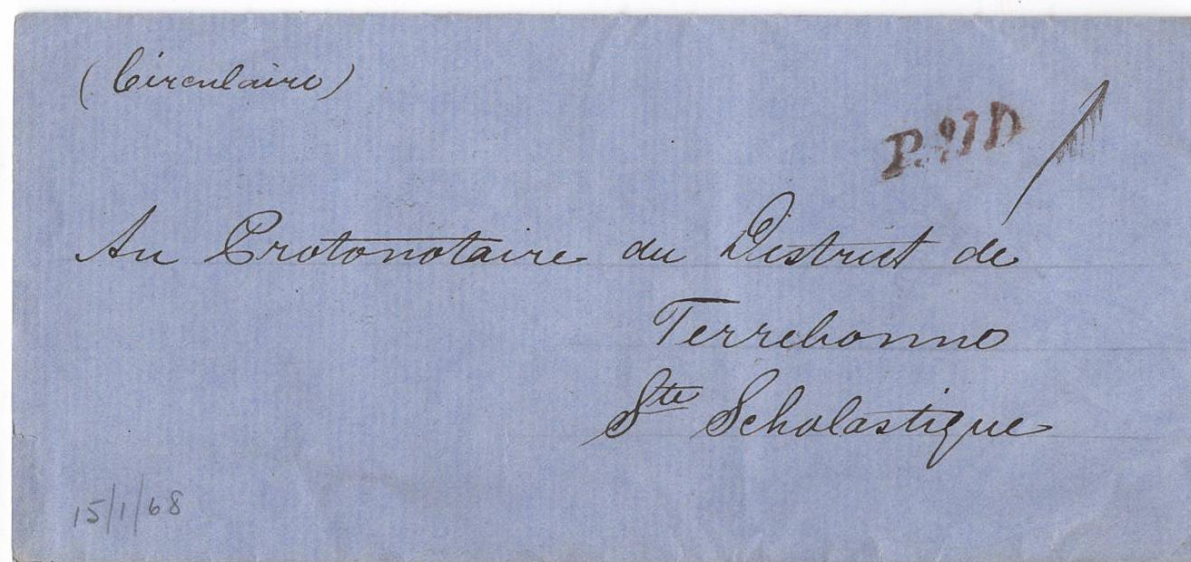 (Circulaire)
PAID
1
Au Protonotaire du District de
Terrebonne
Ste Scholastique
15/1/68